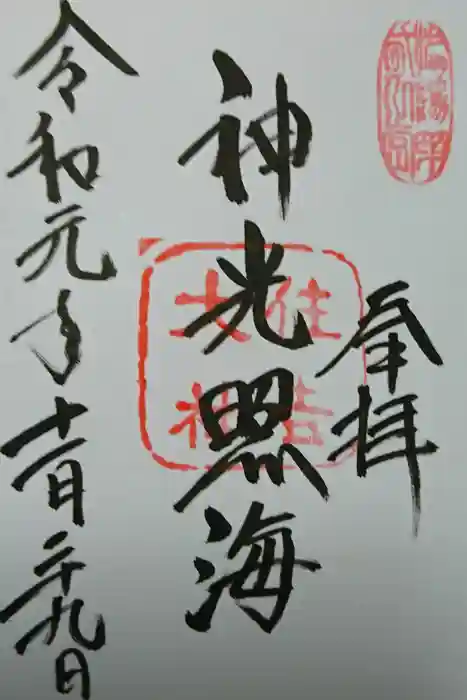 奉拝
神光照海
住吉
大神
令和元年十一月二十九日